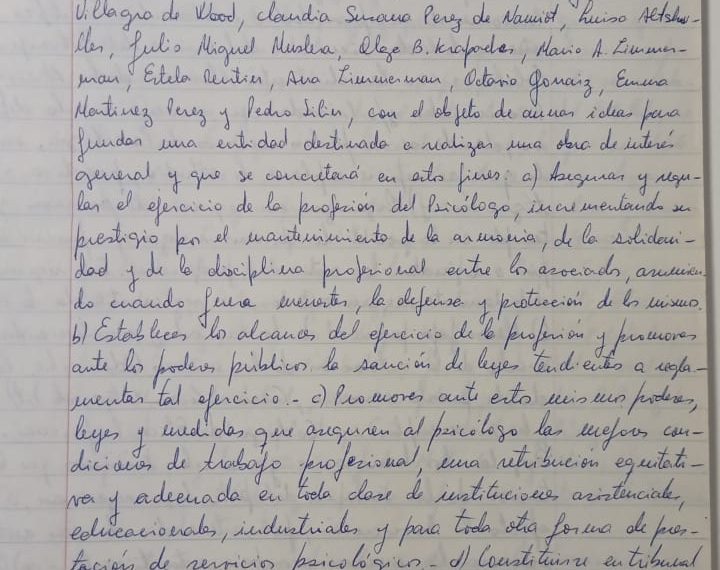 Villagra de Wood, Claudia Susana Perez de Namiot, Luisa Altshu-
ller, Julio Miguel Muslera, Olga B. Krapodes, Mario A. Zimmer-
man, Estela Rentin, Ana Zimmerman, Octavio Gonaiz, Emma
Martinez Perez y Pedro Silin, con el objeto de aunar ideas para
fundar una entidad destinada a realizar una obra de interés
general y que se concretará en estos fines: a) Asegurar y regu-
lar el ejercicio de la profesión del Psicólogo, incrementando su
prestigio por el mantenimiento de la armonía, de la solidari-
dad y de la disciplina profesional entre los asociados, asumien-
do cuando fuera menester, la defensa y protección de los mismos.
b) Establecer los alcances del ejercicio de la profesión y promover
ante los poderes públicos la sanción de leyes tendientes a regla-
mentar tal ejercicio.- c) Promover ante estos mismos poderes,
leyes y medidas que aseguren al psicólogo las mejores con-
diciones de trabajo profesional, una retribución equitati-
va y adecuada en toda clase de instituciones asistenciales,
educacionales, industriales y para toda otra forma de pres-
tación de servicios psicológicos.- d) Constituirse en tribunal